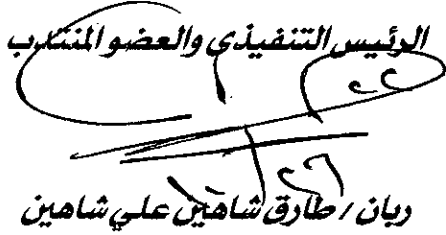 الرئيس التنفيذي والعضو المنتدب
ربان / طارق شاهين علي شاهين